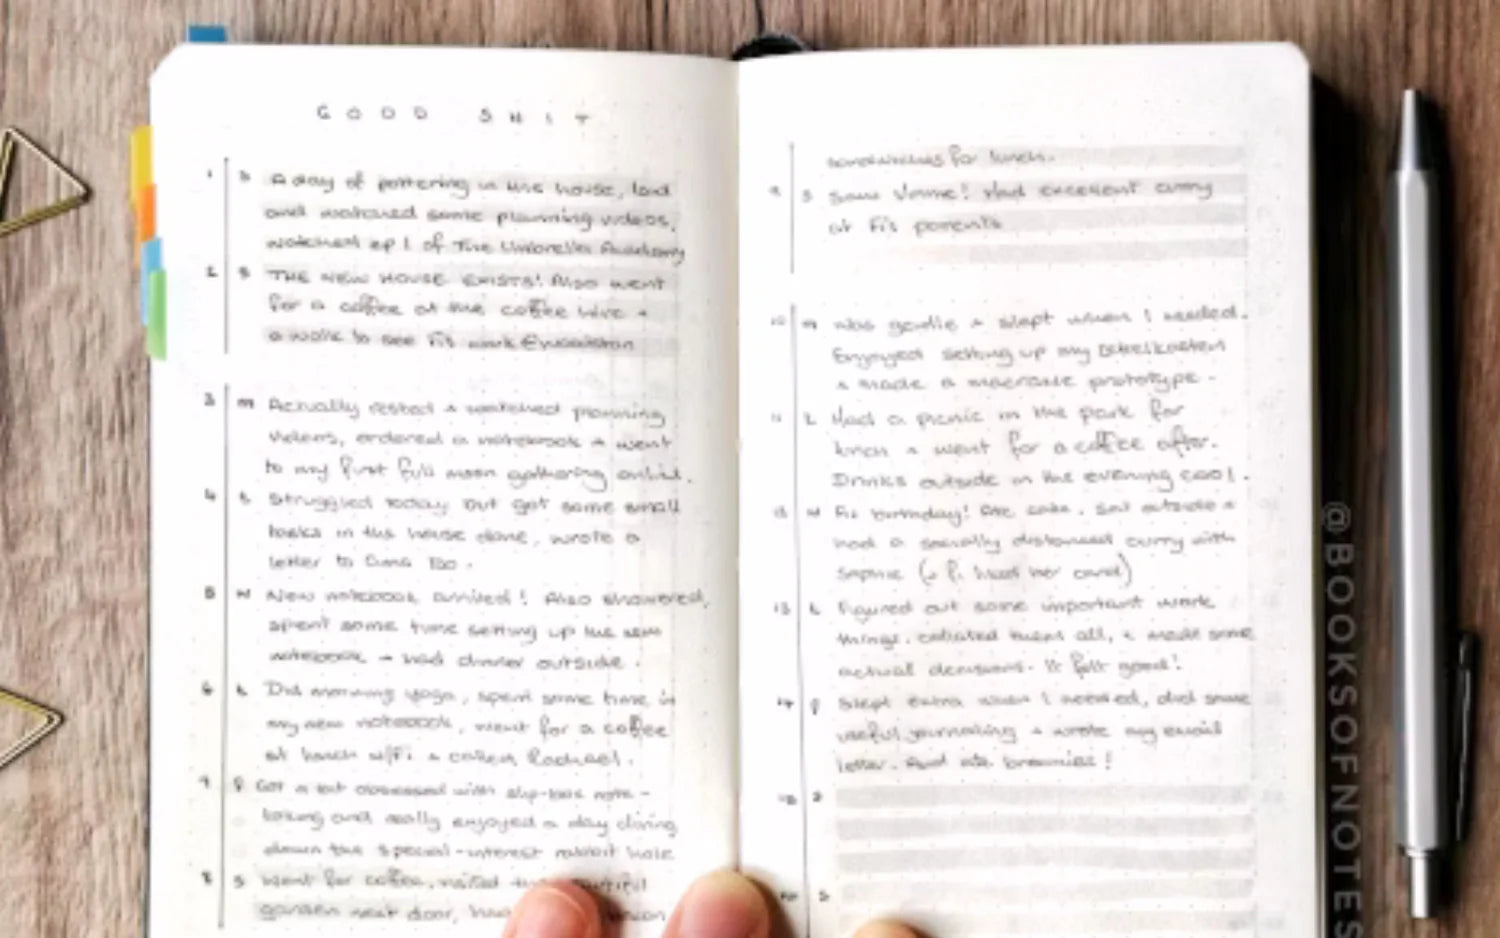 GOOD SHIT
1 S A day of pottering in the house, laid
and watched some planning videos,
watched ep 1 of The Umbrella Academy
2 S THE NEW HOUSE EXISTS! Also went
for a coffee at the coffee hive +
a walk to see Fi's work @
3 M Actually rested + watched planning
videos, ordered a notebook + went
to my first full moon gathering
4 t Struggled today but got some small
tasks in the house done, wrote a
letter to too.
5 W New notebook arrived! Also showered,
spent some time setting up the new
notebook + had dinner outside.
6 t Did morning yoga, spent some time in
my new notebook, went for a coffee
at lunch w/Fi + called Rachael.
7 f Got a bit obsessed with slip-box note-
taking and really enjoyed a day diving
down the special-interest rabbit hole
8 S Went for coffee, visited the
garden next door, had
sandwiches for lunch.
9 S Saw Had excellent curry
at Fi's parents
10 M Was gentle + slept when I needed.
Enjoyed setting up my
+ made a macrame prototype.
11 t Had a picnic in the park for
lunch + went for a coffee after.
Drinks outside in the evening cool.
12 W Fi's birthday! Ate cake. Sat outside +
had a socially distanced curry with
Sophie (+ Fi liked her card)
13 t Figured out some important work
things, collated them all, + made some
actual decisions. It felt good!
14 f Slept extra when I needed, did some
useful journaling + wrote my email
letter. And ate brownies!
15 S
16 S
@BOOKSOFNOTES